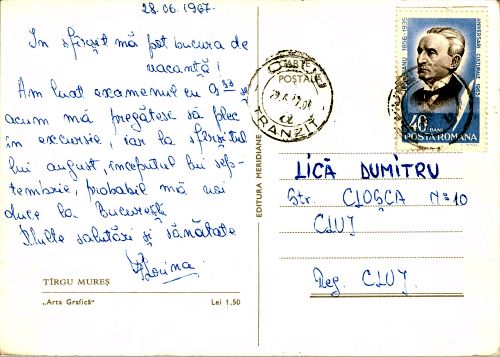 28.06.1967.
În sfîrșit mă pot bucura de
vacanță!
Am luat examenul cu 9.50 și
acum mă pregătesc să plec
în excursie, iar la sfîrșitul
lui august, începutul lui sep-
tembrie, probabil mă voi
duce la București
Multe salutări și sănătate
Florina
TÎRGU MUREȘ
„Arta Grafică"
Lei 1,50
EDITURA MERIDIANE
CARTE
POȘTALĂ
CLUJ
TRANZIT
1856-1935
ANIVERSĂRI CULTURALE 1965
40 BANI
POSTA ROMANA
LICĂ DUMITRU
Str CLOȘCA No 10
CLUJ
Reg. CLUJ